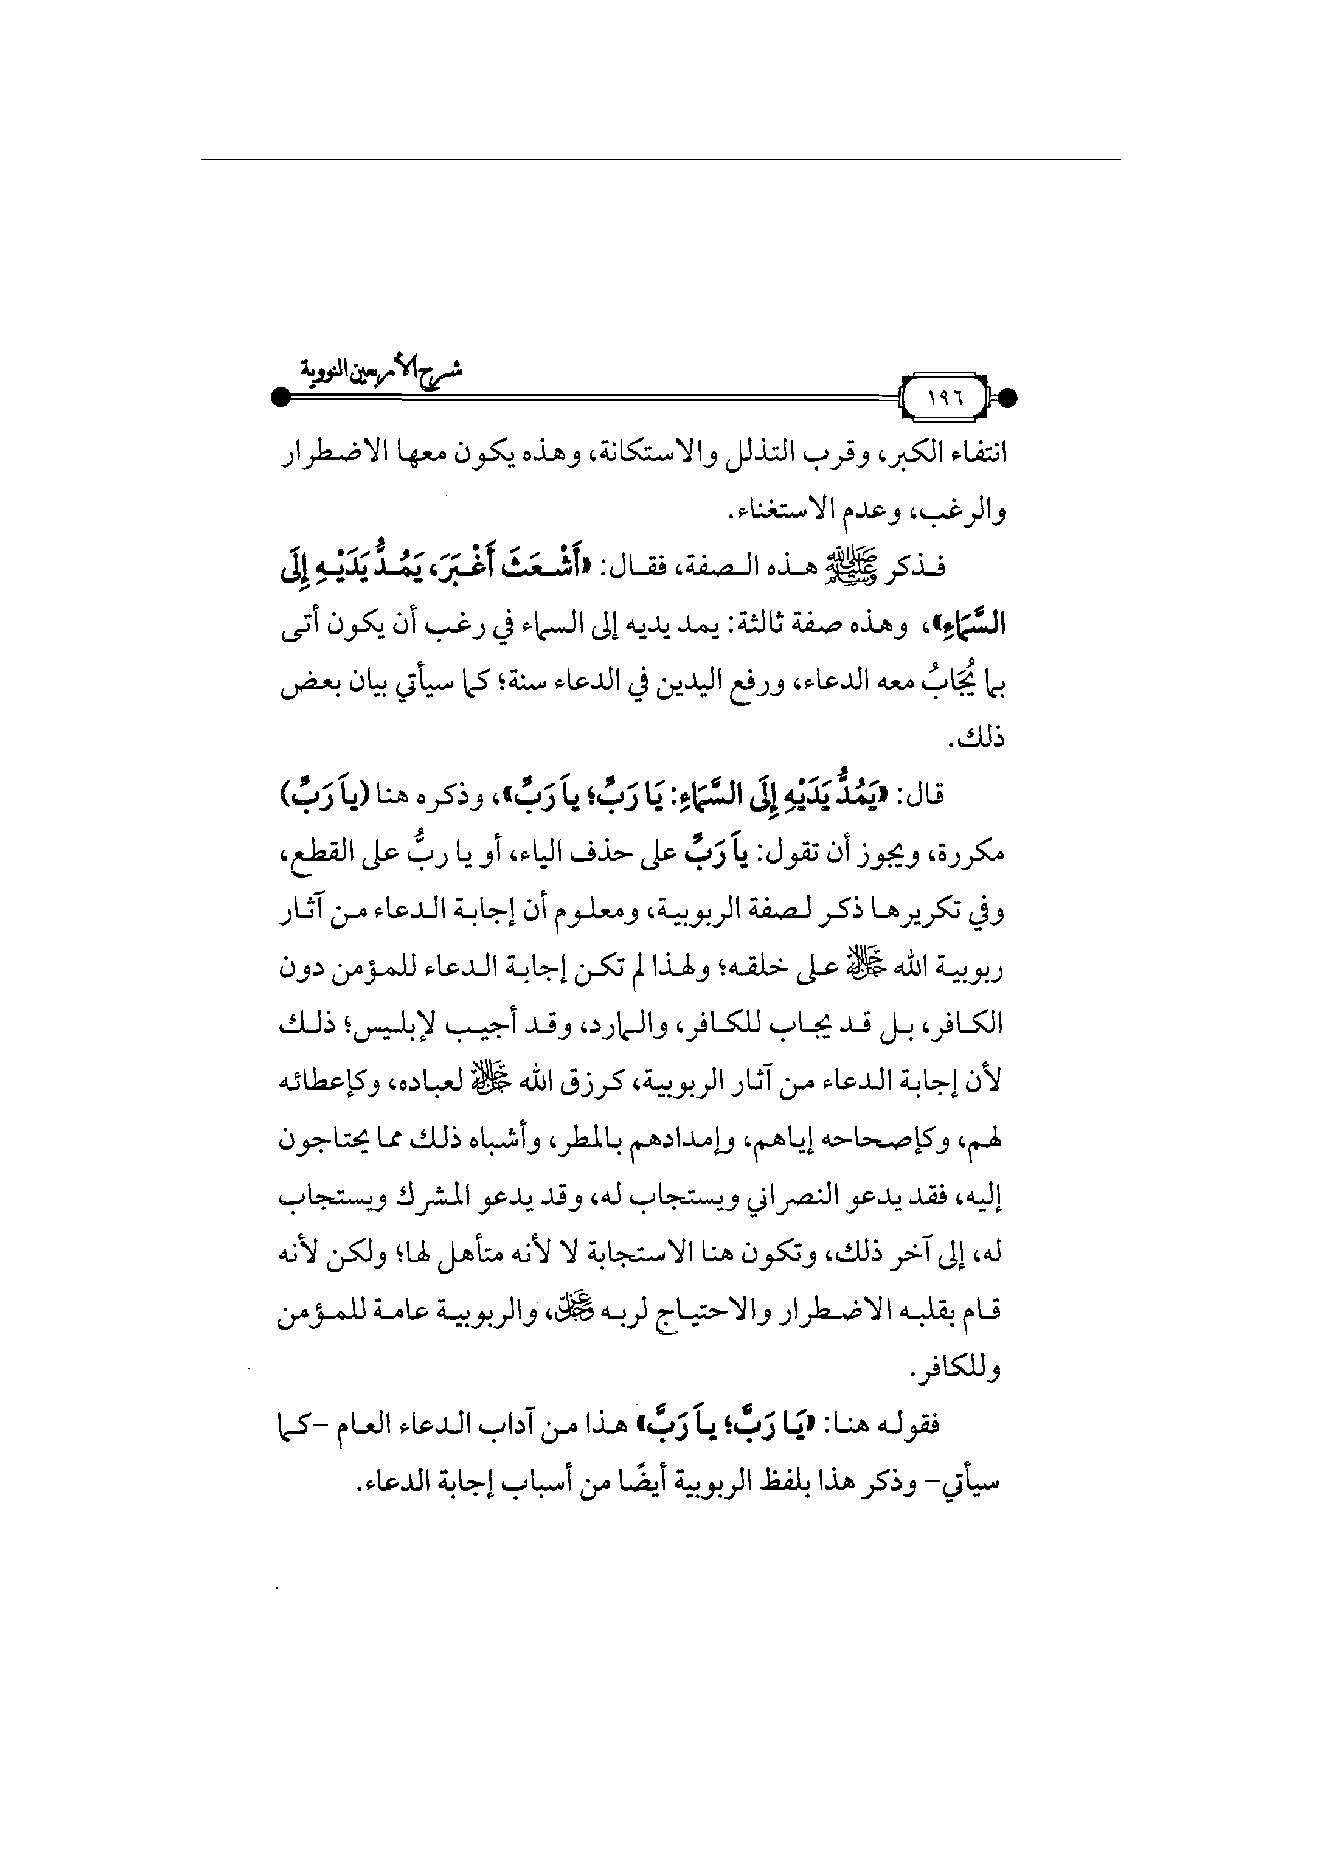 شرح الأربعين النووية
١٩٦
انتفاء الكبر، وقرب التذلل والاستكانة، وهذه يكون معها الاضطرار
والرغب، وعدم الاستغناء.
فذكر ﷺ هذه الصفة، فقال: «أَشْعَثَ أَغْبَرَ، يَمُدُّ يَدَيْهِ إِلَى
السَّمَاءِ»، وهذه صفة ثالثة: يمد يديه إلى السماء في رغب أن يكون أتى
بما يُجَابُ معه الدعاء، ورفع اليدين في الدعاء سنة؛ كما سيأتي بيان بعض
ذلك.
قال: «يَمُدُّ يَدَيْهِ إِلَى السَّمَاءِ: يَا رَبِّ؛ يَا رَبِّ»، وذكره هنا (يَا رَبِّ)
مكررة، ويجوز أن تقول: يَا رَبِّ على حذف الياء، أو يا ربُّ على القطع،
وفي تكريرها ذكر لصفة الربوبية، ومعلوم أن إجابة الدعاء من آثار
ربوبية الله ﷻ على خلقه؛ ولهذا لم تكن إجابة الدعاء للمؤمن دون
الكافر، بل قد يجاب للكافر، والمارد، وقد أجيب لإبليس؛ ذلك
لأن إجابة الدعاء من آثار الربوبية، كرزق الله ﷻ لعباده، وكإعطائه
لهم، وكإصحاحه إياهم، وإمدادهم بالمطر، وأشباه ذلك مما يحتاجون
إليه، فقد يدعو النصراني ويستجاب له، وقد يدعو المشرك ويستجاب
له، إلى آخر ذلك، وتكون هنا الاستجابة لا لأنه متأهل لها؛ ولكن لأنه
قام بقلبه الاضطرار والاحتياج لربه عَزَّ وَجَلَّ، والربوبية عامة للمؤمن
وللكافر.
فقوله هنا: «يَا رَبِّ؛ يَا رَبِّ» هذا من آداب الدعاء العام -كما
سيأتي- وذكر هذا بلفظ الربوبية أيضًا من أسباب إجابة الدعاء.